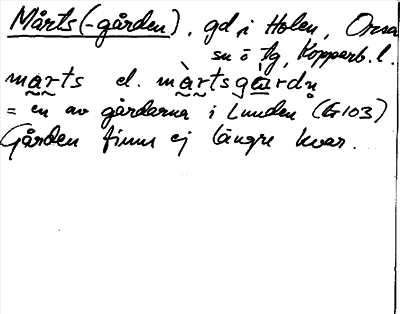 Mårts(-gården), gd i Holen, Orsa
sn o tg, Kopparb. l.
marts el. màrtsgàrdn̥
= en av gårdarna i Lunden (Gr103)
Gården finns ej längre kvar.